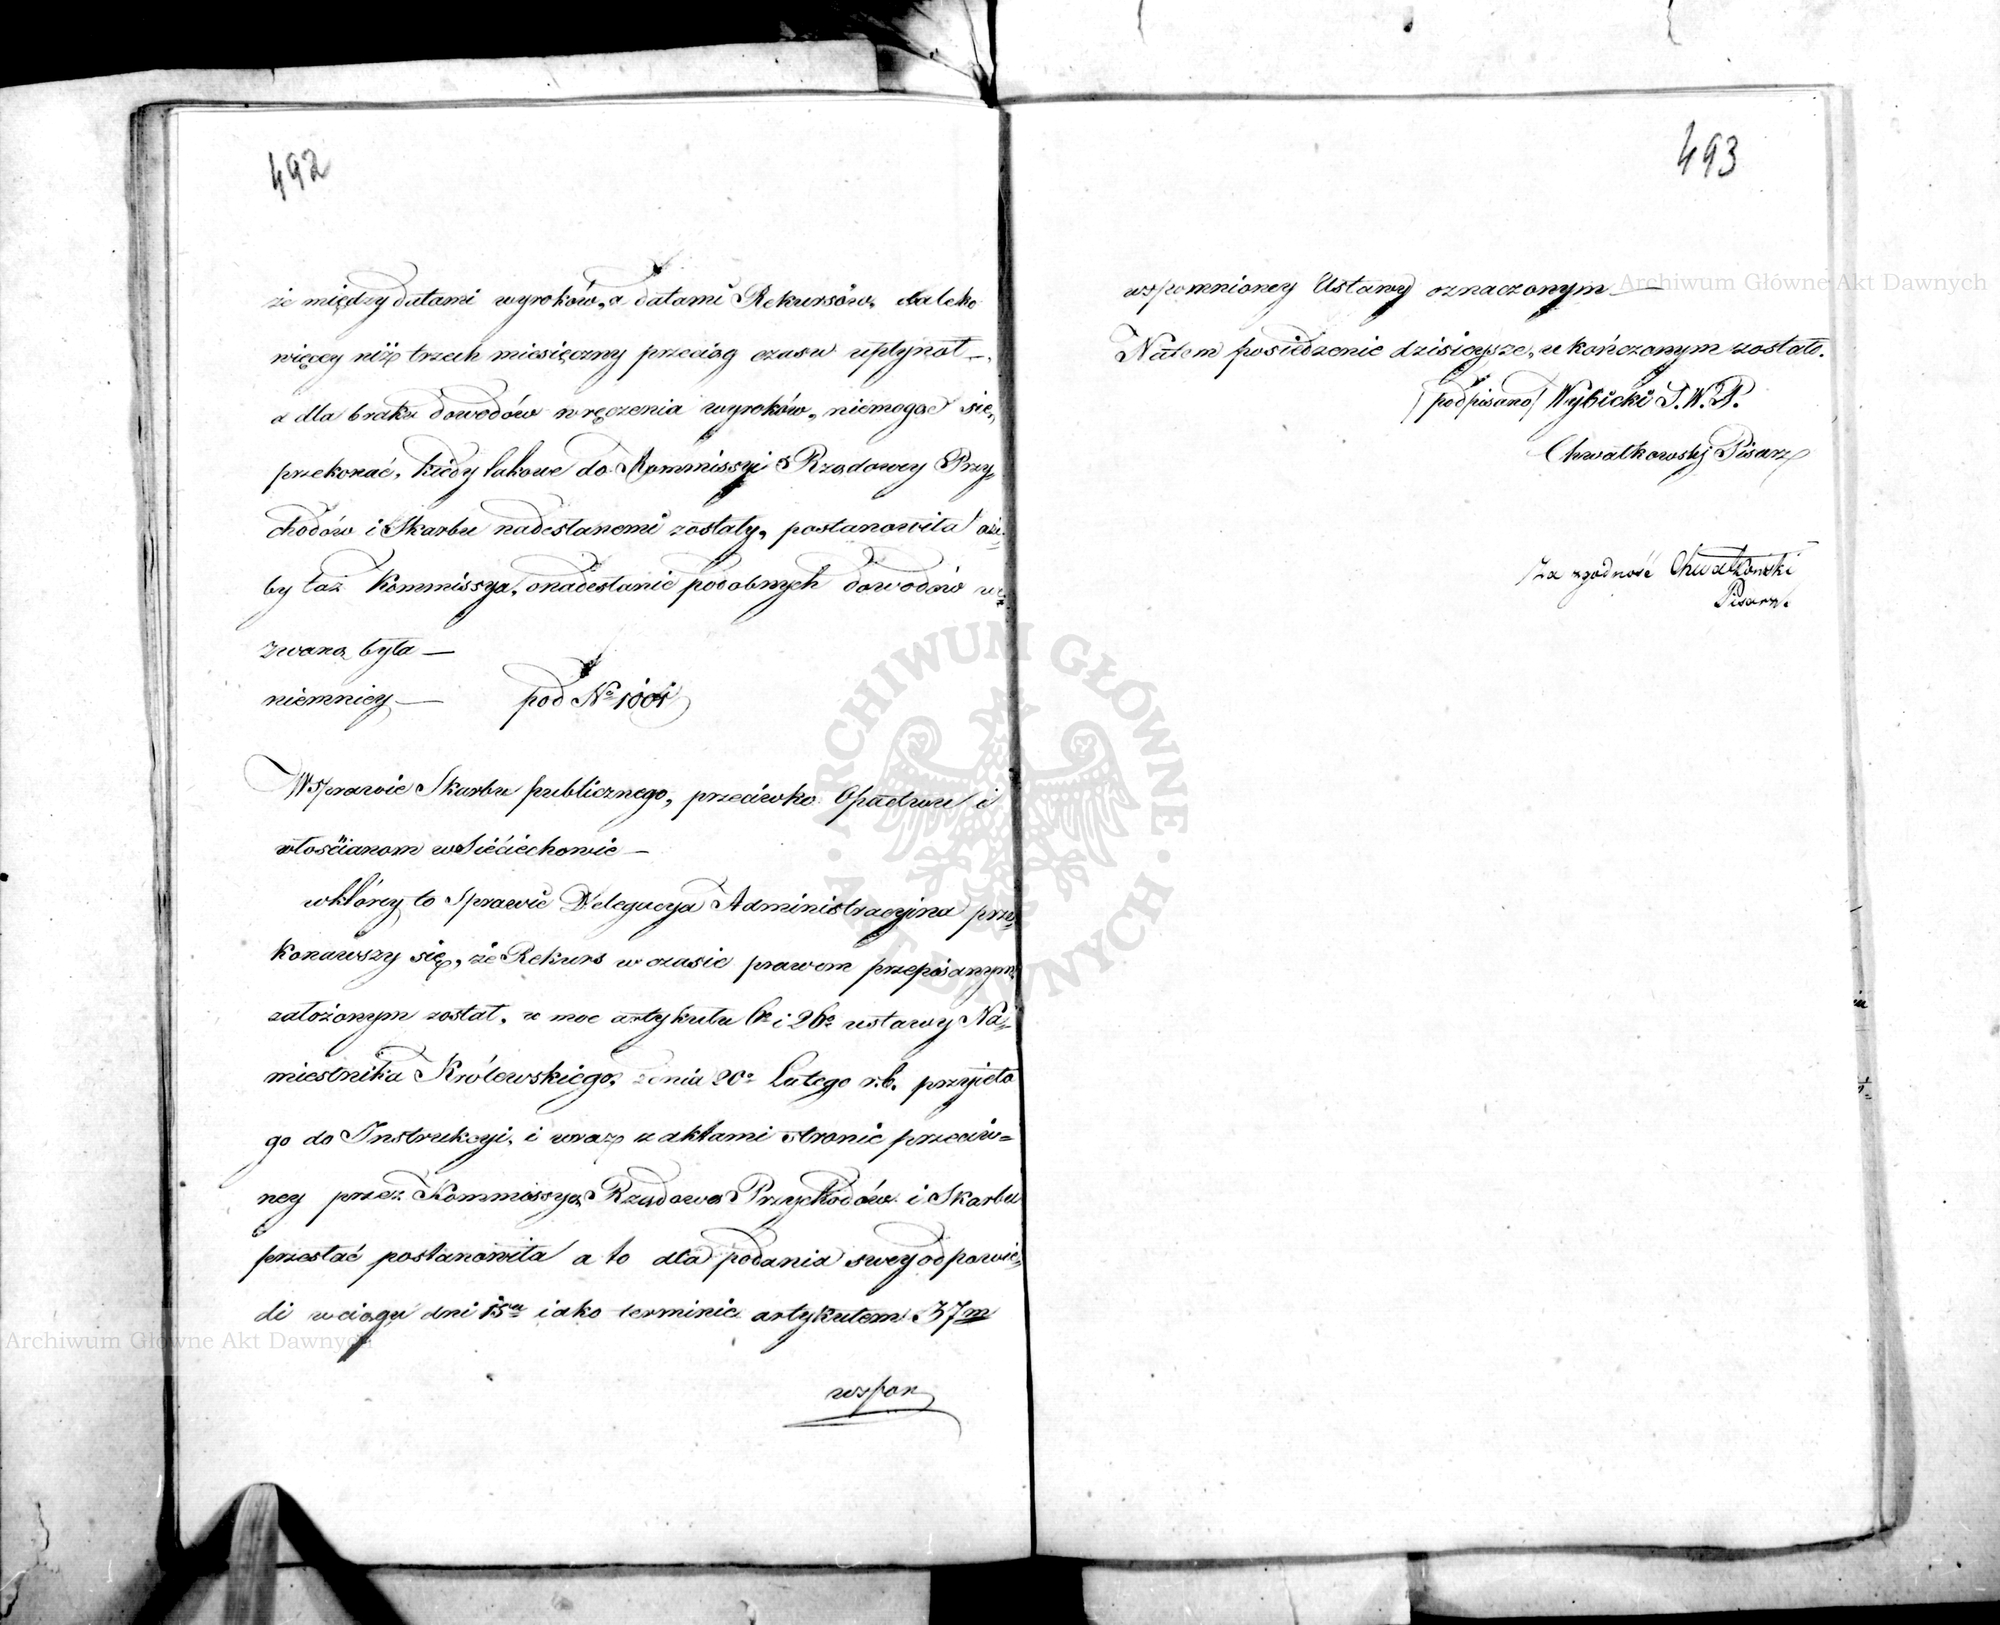 492
że między datami wyroków, a datami Rekursów, daleko
więcey niż trzech miesięczny przeciąg czasu upłynął —
a dla braku dowodów wręczenia wyroków, niemogąc się,
przekonać, kiedy takowe do Kommissyi Rządowey Przy-
chodów i Skarbu nadesłanemi zostały, postanowiła aże-
by taż Kommissya, o nadesłanie podobnych dowodów we-
zwaną była —
niemniey — pod No
W sprawie Skarbu publicznego, przeciwko Opactwu i
włościanom w Siéciéchowie —
w którey to Sprawie Delegacya Administracyjna prze-
konawszy się, że Rekurs w czasie prawem przepisanym
założonym został, w moc artykułu 6o i 26o ustawy Na-
miestnika Królewskiego, z dnia 20o Lutego r.b. przyjęła
go do Instrukcyi, i wraz z aktami stronie przeciw=
ney przez Kommissyą Rządową Przychodów i Skarbu
przesłać postanowiła a to dla podania swey odpowie-
di w ciągu dni 15u iako terminie artykułem 37m
wspom
493
wspomnioney Ustawy oznaczonym —
Na tem posiedzenie dzisieysze, ukończonym zostało.
/podpisano/ Wybicki S.W.P.
Chwałkowski Pisarz
Za zgodność Chwałkowski
Pisarz.
Archiwum Główne Akt Dawnych
Archiwum Główne Akt Dawnych
ARCHIWUM GŁÓWNE AKT DAWNYCH